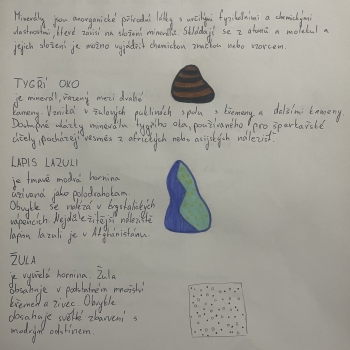 Minerály jsou anorganické přírodní látky s určitými fyzikálními a chemickými
vlastnostmi, které závisí na složení minerálu. Skládají se z atomů a molekul a
jejich složení je možno vyjádřit chemickou značkou nebo vzorcem.
TYGŘÍ OKO
je minerál, řazený mezi drahé
kameny. Vzniká v žulových puklinách spolu s křemeny a dalšími kameny.
Dostupné ukázky minerálu tygřího oka, používaného pro šperkařské
účely, pocházejí vesměs z afrických nebo asijských nalezišť.
LAPIS LAZULI
je tmavě modrá hornina
užívaná jako polodrahokam.
Obvykle se nalézá v krystalických
vápencích. Nejdůležitější naleziště
lapisu lazuli je v Afghánistánu.
ŽULA
je vyvřelá hornina. Žula
obsahuje v podstatném množství
křemen a živec. Obvykle
obsahuje světlé zbarvení s
modrým odstínem.